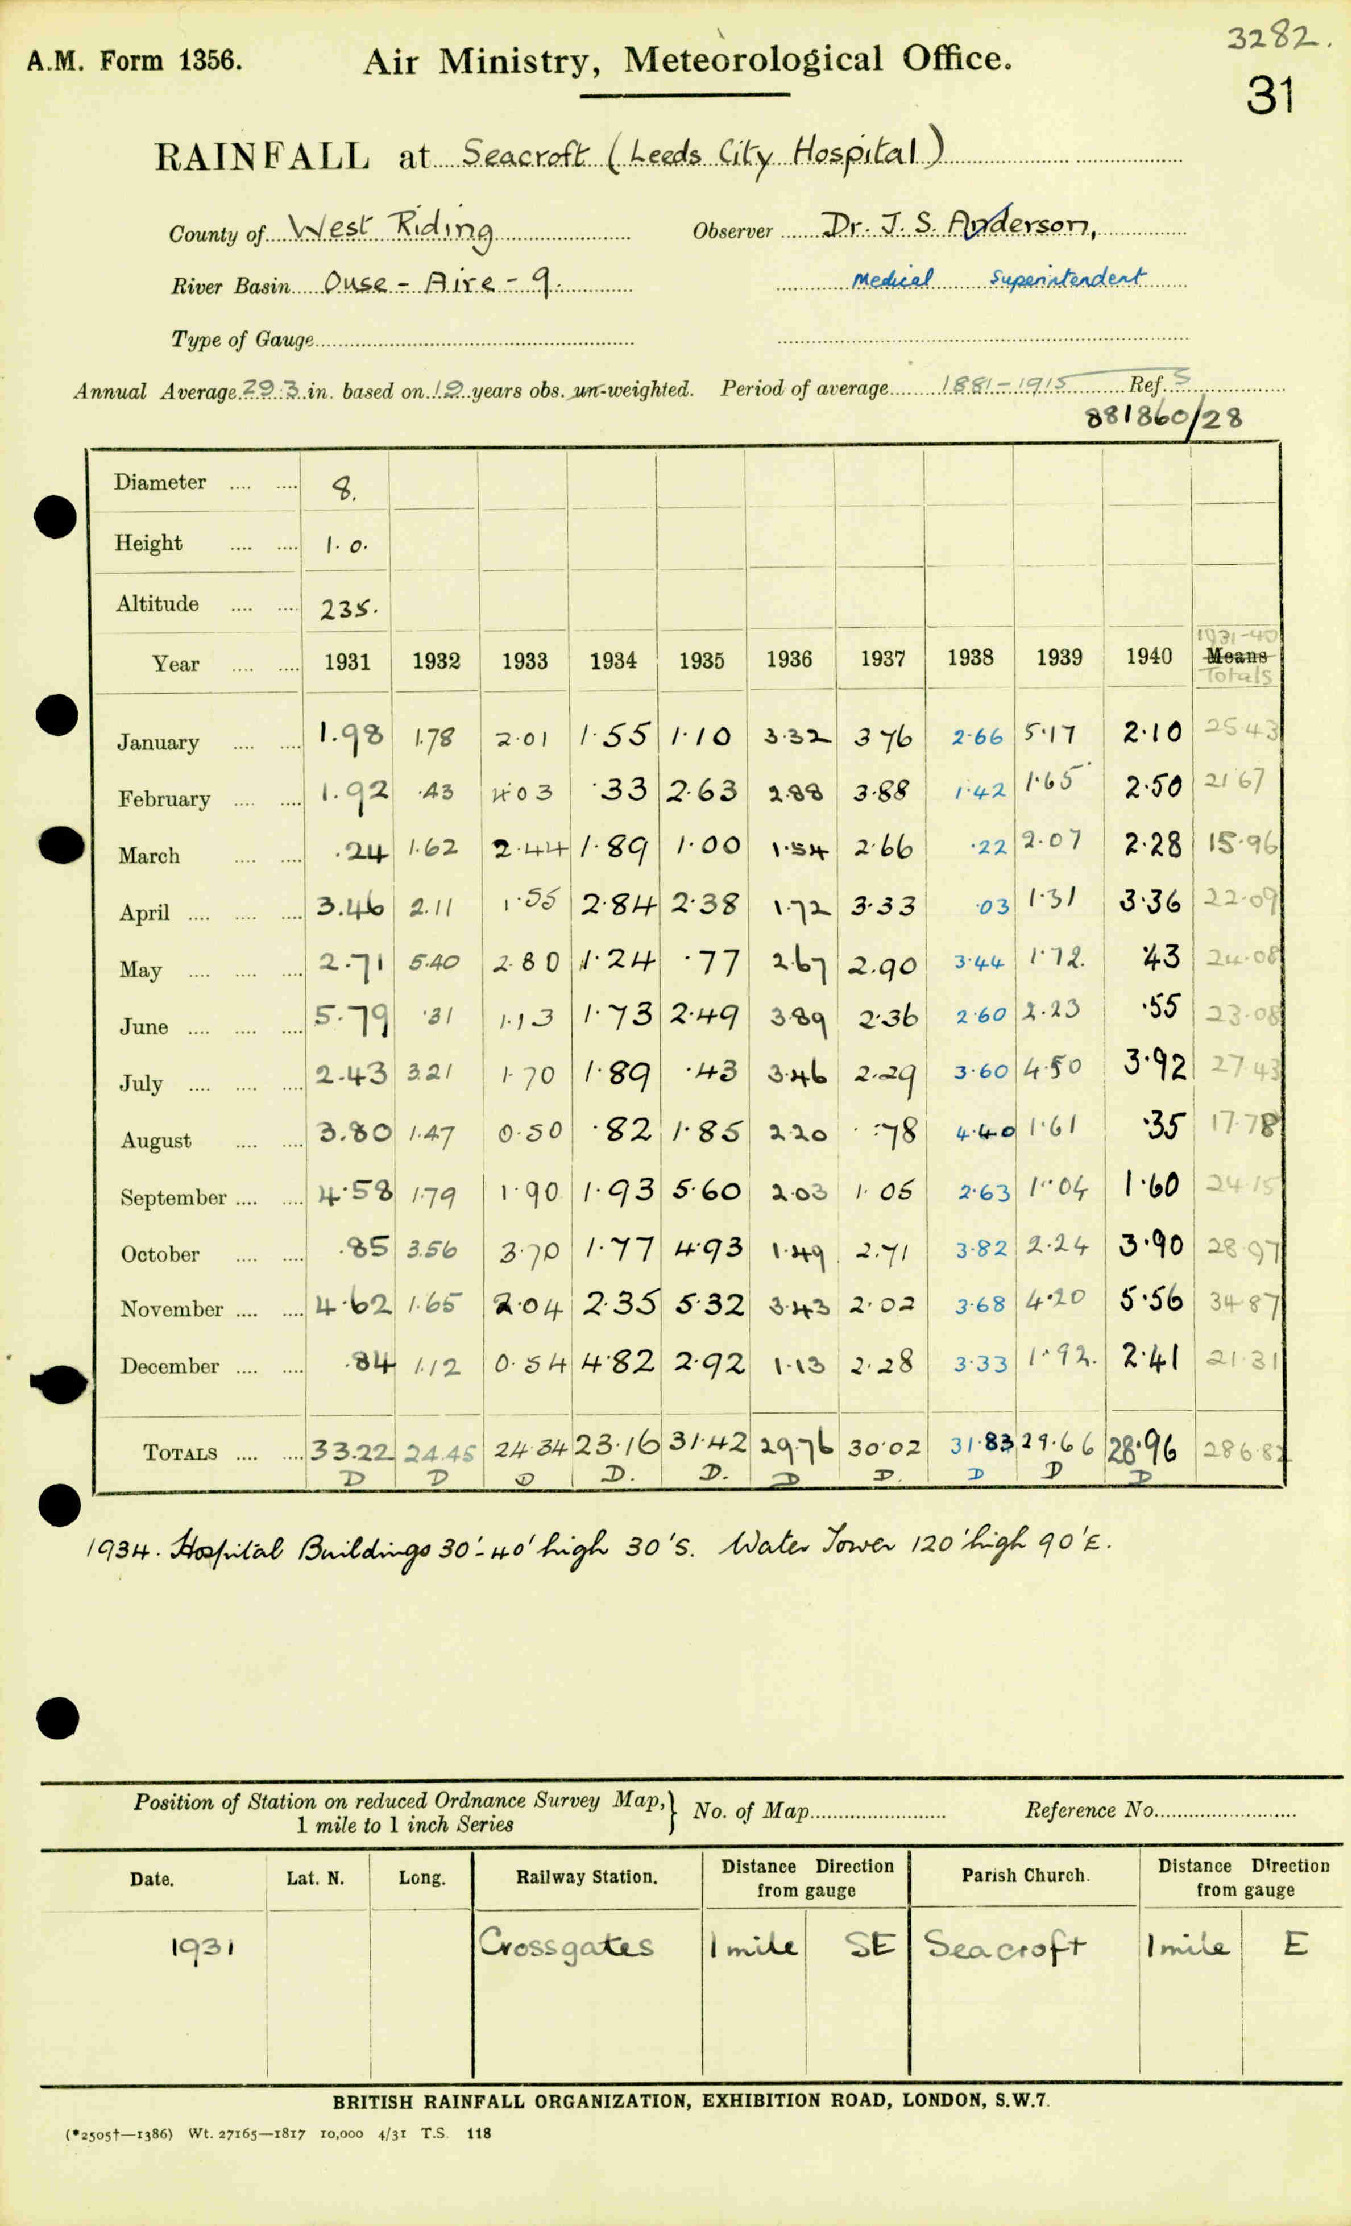 3282.
A.M. Form 1356. Air Ministry, Meteorological Office.
31
RAINFALL at Seacroft (Leeds City Hospital)
County of West Riding Observer Dr. J. S. Anderson,
River Basin Ouse - Aire - 9. Medical Superintendent
Type of Gauge
Annual Average 29.3 in. based on 19 years obs. un-weighted. Period of average 1881-1915 Ref. S
881860/28
Diameter 8.
Height 1.0.
Altitude 235.
1931-40
Year 1931 1932 1933 1934 1935 1936 1937 1938 1939 1940 Means
Totals
January 1.98 1.78 2.01 1.55 1.10 3.32 3.76 2.66 5.17 2.10 25.43
February 1.92 .43 4.03 .33 2.63 2.88 3.88 1.42 1.65 2.50 21.67
March .24 1.62 2.44 1.89 1.00 1.54 2.66 .22 2.07 2.28 15.96
April 3.46 2.11 1.55 2.84 2.38 1.72 3.33 .03 1.31 3.36 22.09
May 2.71 5.40 2.80 1.24 .77 2.67 2.90 3.44 1.72 .43 24.08
June 5.79 .31 1.13 1.73 2.49 3.89 2.36 2.60 2.23 .55 23.08
July 2.43 3.21 1.70 1.89 .43 3.46 2.29 3.60 4.50 3.92 27.43
August 3.80 1.47 0.50 .82 1.85 2.20 .78 4.40 1.61 .35 17.78
September 4.58 1.79 1.90 1.93 5.60 2.03 1.05 2.63 1.04 1.60 24.15
October .85 3.56 3.70 1.77 4.93 1.49 2.71 3.82 2.24 3.90 28.97
November 4.62 1.65 2.04 2.35 5.32 3.43 2.02 3.68 4.20 5.56 34.87
December .84 1.12 0.54 4.82 2.92 1.13 2.28 3.33 1.92. 2.41 21.31
TOTALS 33.22 24.45 24.34 23.16 31.42 29.76 30.02 31.83 29.66 28.96 286.82
D D D D. D. D D. D D D
1934. Hospital Buildings 30'-40' high 30'S. Water Tower 120' high 90'E.
Position of Station on reduced Ordnance Survey Map, } No. of Map Reference No.
1 mile to 1 inch Series
Date. Lat. N. Long. Railway Station. Distance Direction from gauge Parish Church. Distance Direction from gauge
1931 Crossgates 1 mile SE Seacroft 1 mile E
BRITISH RAINFALL ORGANIZATION, EXHIBITION ROAD, LONDON, S.W.7.
(*2505†—1386) Wt. 27165—1817 10,000 4/31 T.S. 118